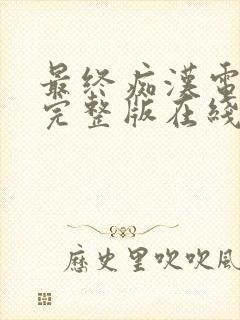 最终痴漢電
完整版在綫
歷史里吹吹風